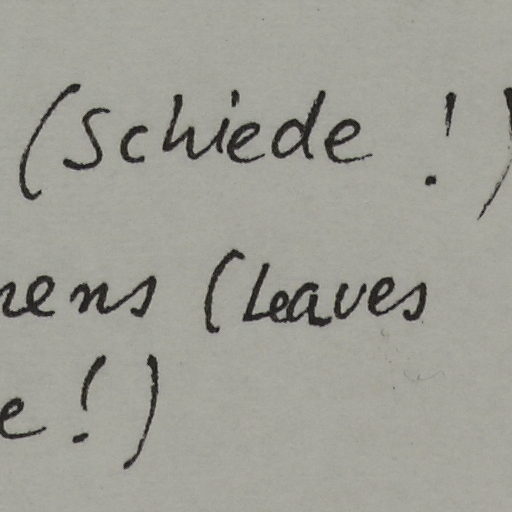 (Schiede !)
nens (Leaves
e !)